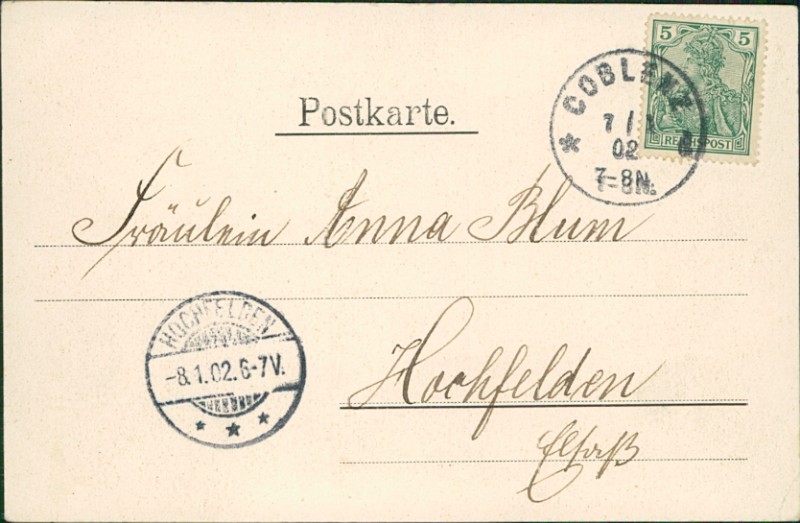 5 5
REICHSPOST
COBLENZ
7/1
02
7-8N.
Postkarte.
Fräulein Anna Blum
HOCHFELDEN
-8.1.02.6-7V.
Hochfelden
Elsaß